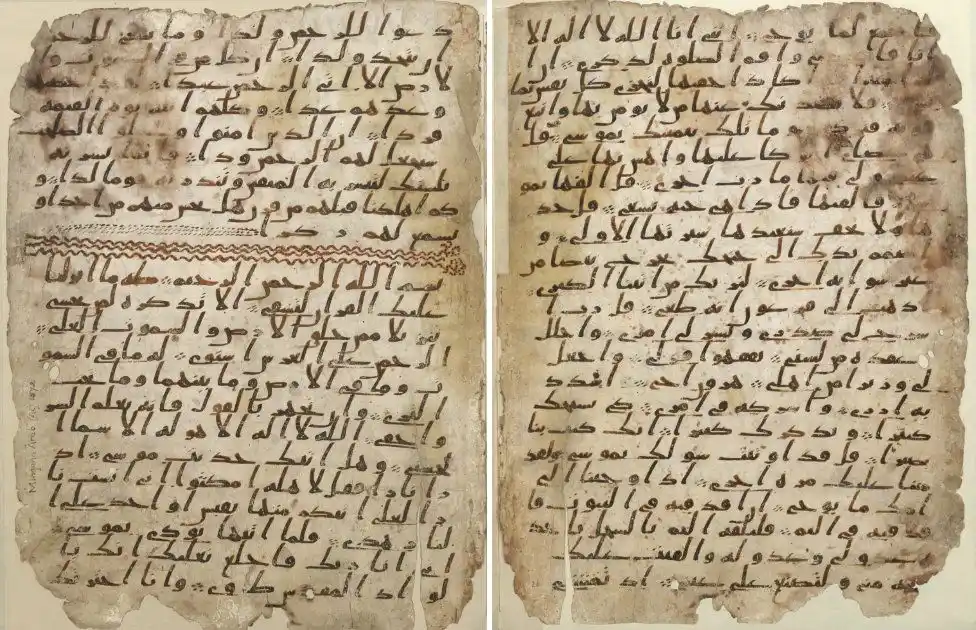 دعوا للرحمن ولدا وما ينبغي للرحمن
ان يتخذ ولدا ان كل من في السموت وا
لارض الا اتي الرحمن عبدا لقد احصيهم
وعدهم عدا وكلهم اتيه يوم القيمه
فردا ان الذين امنوا وعملوا الصلحت
سيجعل لهم الرحمن ودا فانما يسرنه
بلسنك لتبشر به المتقين وتنذر به قوما لدا و
كم اهلكنا قبلهم من قرن هل تحس منهم من احد او
تسمع لهم ركزا
بسم الله الرحمن الرحيم طه ما انزلنا
عليك القران لتشقي الا تذكره لمن يخشي
تنزيلا ممن خلق الارض والسموت العلي
الرحمن علي العرش استوي له ما في السمو
ت وما في الارض وما بينهما وما تحت
الثري وان تجهر بالقول فانه يعلم السر
واخفي الله لا اله الا هو له الاسما ا
لحسني وهل اتيك حديث موسي اذ
را نارا فقل لاهله امكثوا اني انست نا
را لعلي اتيكم منها بقبس او اجد علي ا
لنار هدي فلما اتيها نودي يموسي
اني انا ربك فاخلع نعليك انك با
لواد المقدس طوي وانا اخترتك
Mingana Arab. Isl. 1572
فاستمع لما يوحي انني انا الله لا اله الا
انا واقم الصلوه لذكري ان ا
اكاد اخفيها لتجزي كل نفس بما
فلا يصدنك عنها من لا يومن بها واتبع
هويه فتردي وما تلك بيمينك يموسي قل
عصاي اتوكا عليها واهش بها علي
غنمي ولي فيها مارب اخري قل القها يمو
سي فالقيها فاذا هي حيه تسعي قل خذ
ها ولا تخف سنعيدها سيرتها الاولي و
اضمم يدك الي جنحك تخرج بيضا من
غير سو ايه اخري لنريك من ايتنا الكبري
اذهب الي فرعون انه طغي قل رب ا
شرح لي صدري ويسر لي امري واحلل
عقده من لسني يفقهوا قولي واجعل
لي وزيرا من اهلي هرون اخي اشدد
به ازري واشركه في امري كي نسبحك
كثيرا ونذكرك كثيرا انك كنت بنا
بصيرا قل قد اوتيت سولك يموسي ولقد
مننا عليك مره اخري اذ اوحينا الي
امك ما يوحي ان اقذفيه في التبوت فا
قذفيه في اليم فليلقه اليم بالسحل ياخذه
عدو لي وعدو له والقيت عليك
محبه مني ولتصنع علي عيني اذ تمشي